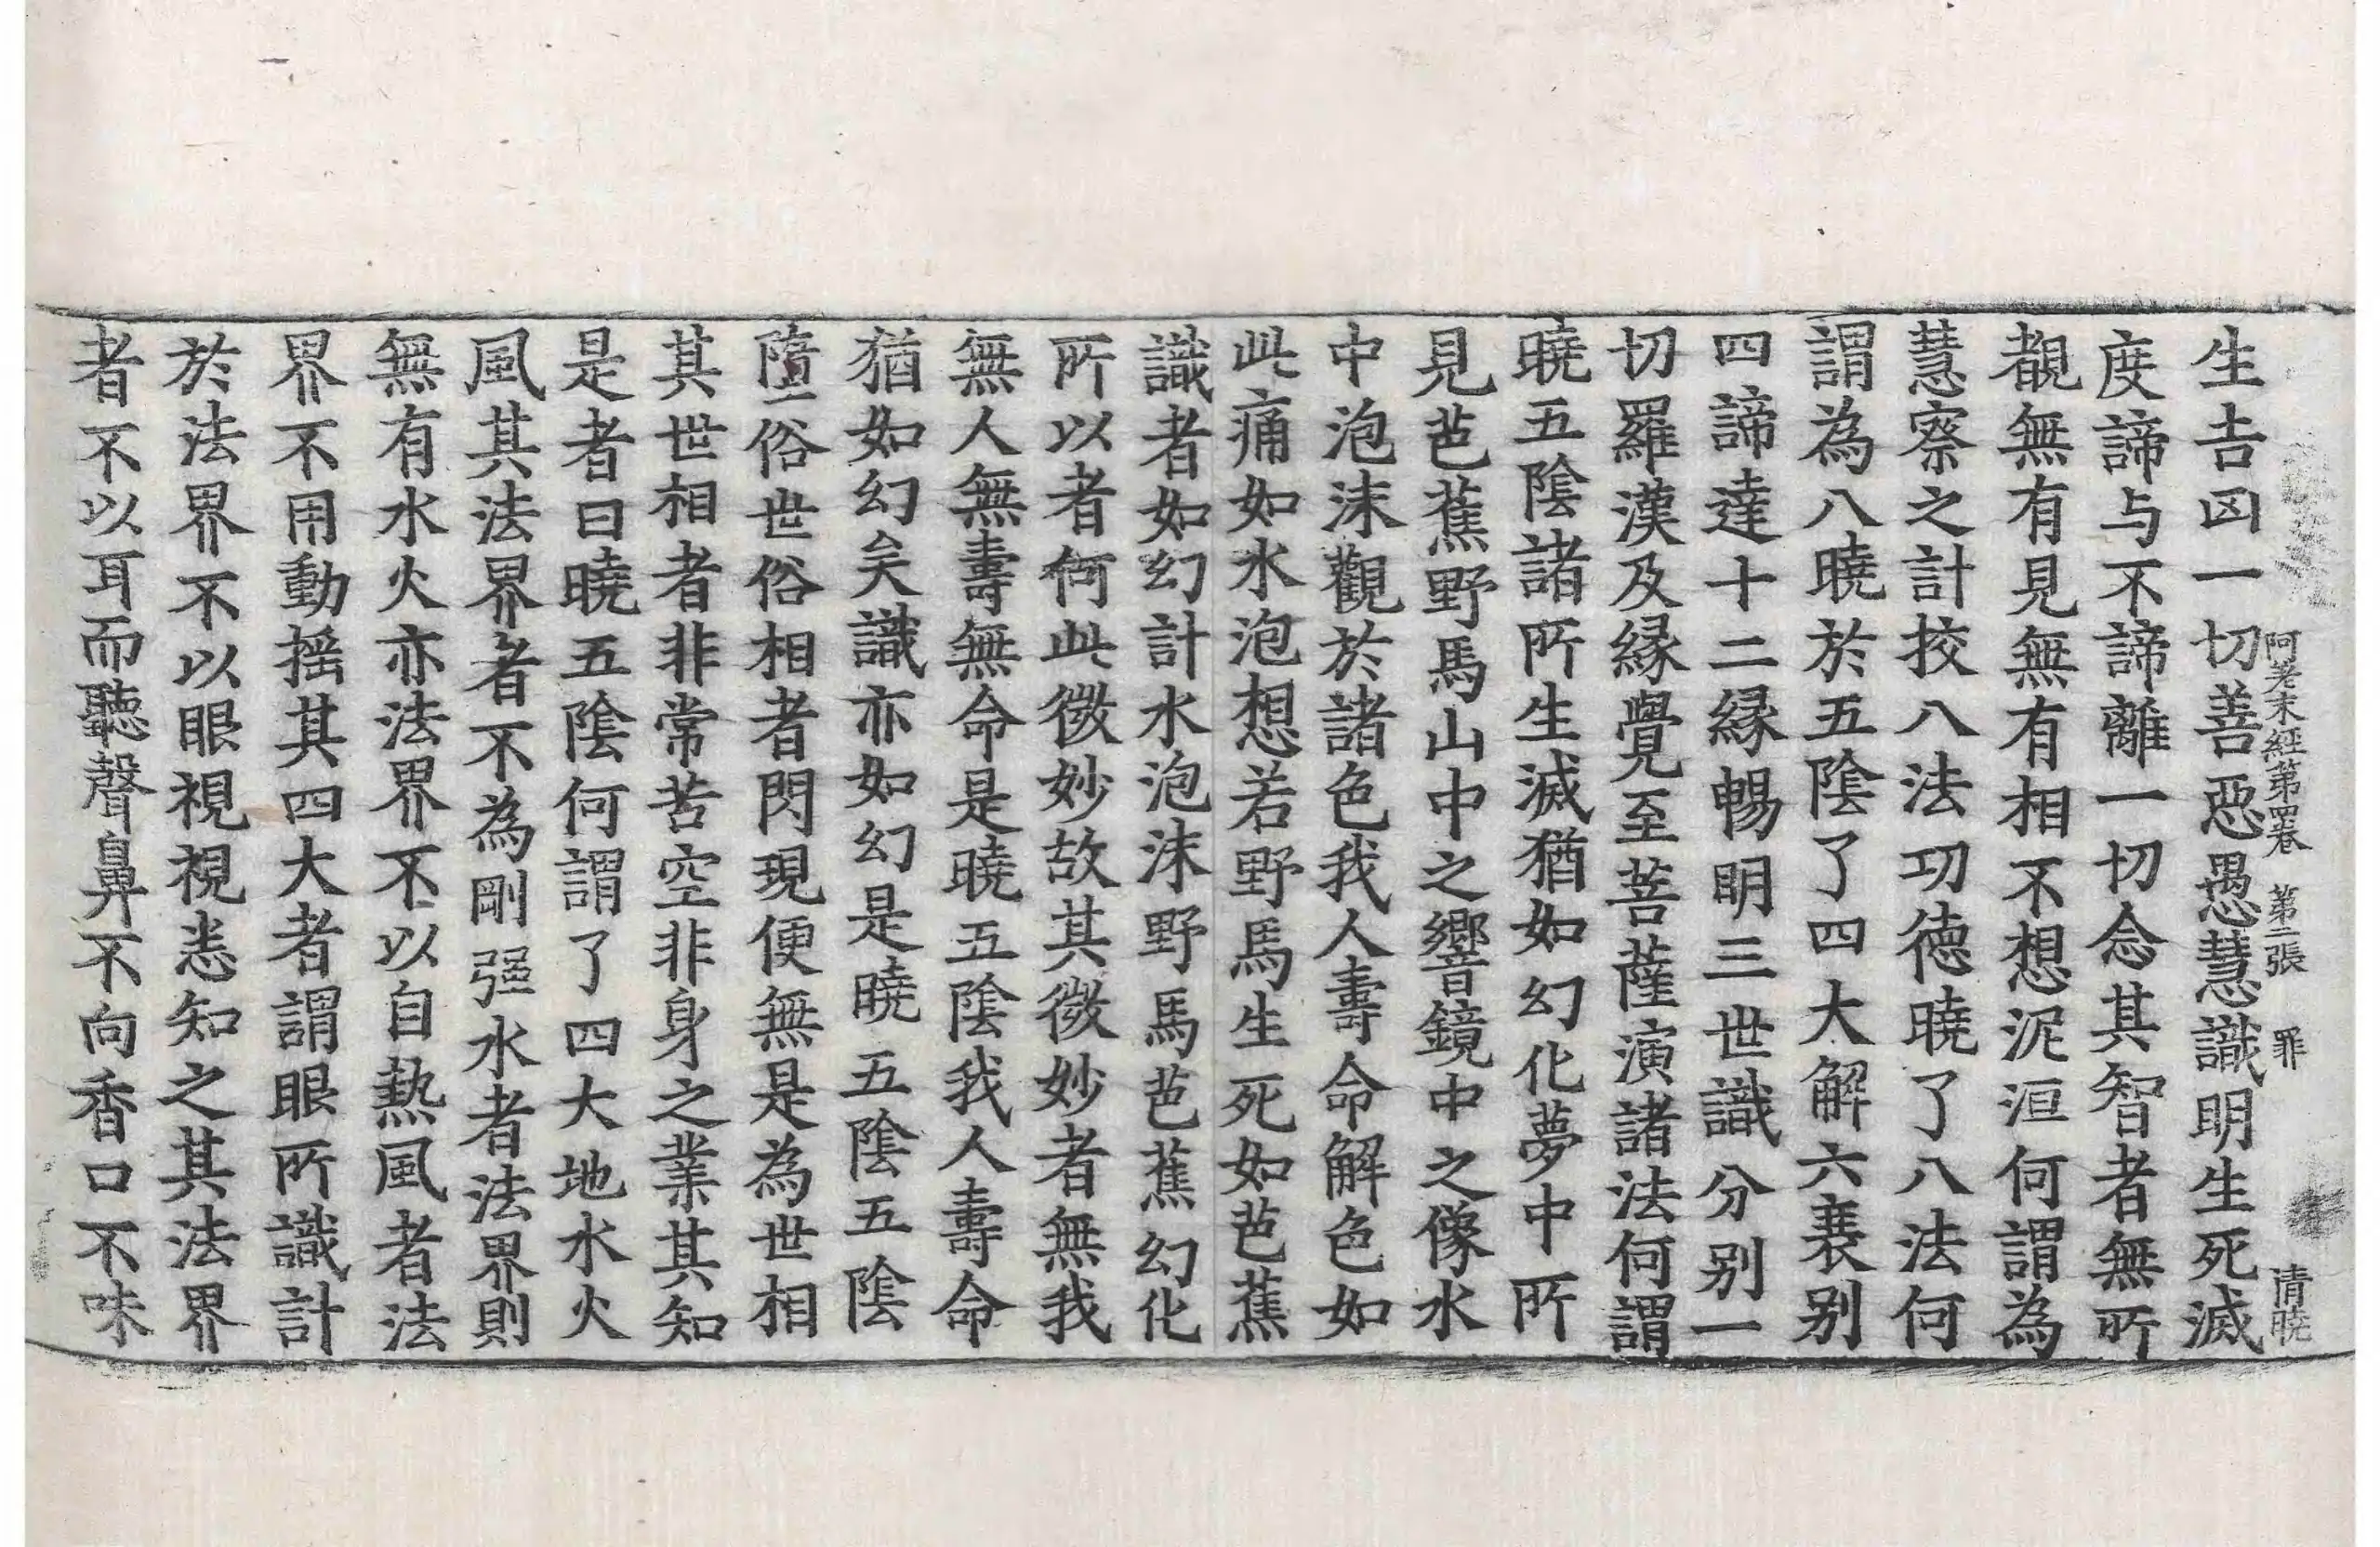 阿差末經第四卷 第二張 罪 清曉
生吉凶一切善惡愚慧識明生死滅
度諦与不諦離一切念其智者無所
覩無有見無有相不想泥洹何謂為
慧察之計挍八法功德曉了八法何
謂為八曉於五陰了四大解六衰别
四諦達十二緣暢明三世識分别一
切羅漢及緣覺至菩薩演諸法何謂
曉五陰諸所生滅猶如幻化夢中所
見芭蕉野馬山中之響鏡中之像水
中泡沫觀於諸色我人壽命解色如
此痛如水泡想若野馬生死如芭蕉
識者如幻計水泡沫野馬芭蕉幻化
所以者何此微妙故其微妙者無我
無人無壽無命是曉五陰我人壽命
猶如幻矣識亦如幻是曉五陰五陰
墮俗世俗相者閃現便無是為世相
其世相者非常苦空非身之業其知
是者曰曉五陰何謂了四大地水火
風其法界者不為剛强水者法界則
無有水火亦法界不以自熱風者法
界不用動搖其四大者謂眼所識計
於法界不以眼視視恚知之其法界
者不以耳而聽聲鼻不向香口不味